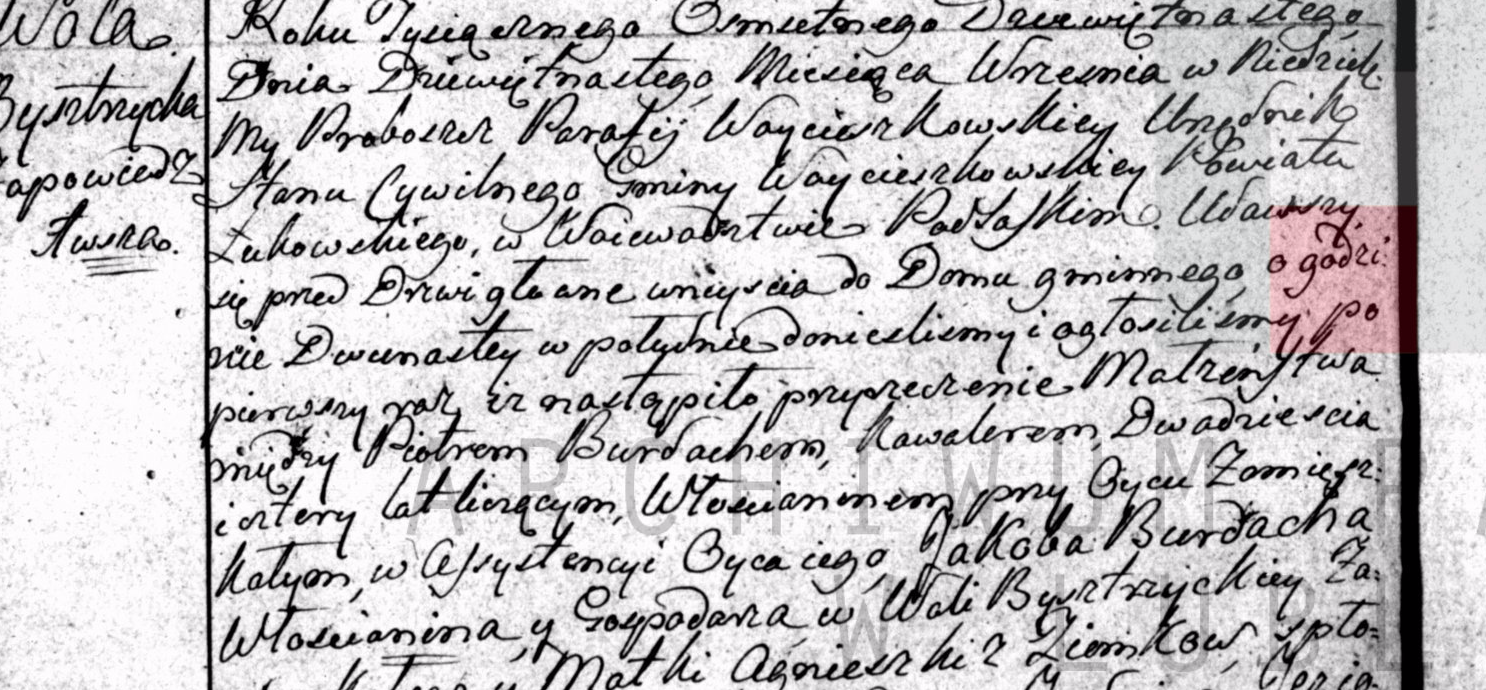 Wola
Bysztrzycka
Zapowiedz
Awsza.
Roku Tysiącznego Osmsetnego Dziewiętnastego
Dnia Dziewiętnastego Miesiąca Wrzesnia w Niedzielę
My Proboszcz Parafij Woycieszkowskiey Urzędnik
Stanu Cywilnego Gminy Woycieszkowskiey Powiatu
Łukowskiego, w Woiewodztwie Podlaskim. Udawszy
się przed Drzwi głowne wniyscia do Domu gminnego o godzi:
nie Dwunastey w południe doniesliśmy i ogłosiliśmy po
pierwszy raz iż nastąpiło przyrzeczenie Małżeństwa
między Piotrem Burdachem, Kawalerem Dwadziescia
i cztery lat liczącym, Włoscianinem przy Oycu Zamiesz:
kałym, w Assystencyi Oyca iego Jakoba Burdacha
Włoscianina y Gospodarza w Woli Bysztrzyckiey Za:
y Matki Agnieszki z Ziomkow, spło:
ARCHIWUM PA
W LUBL